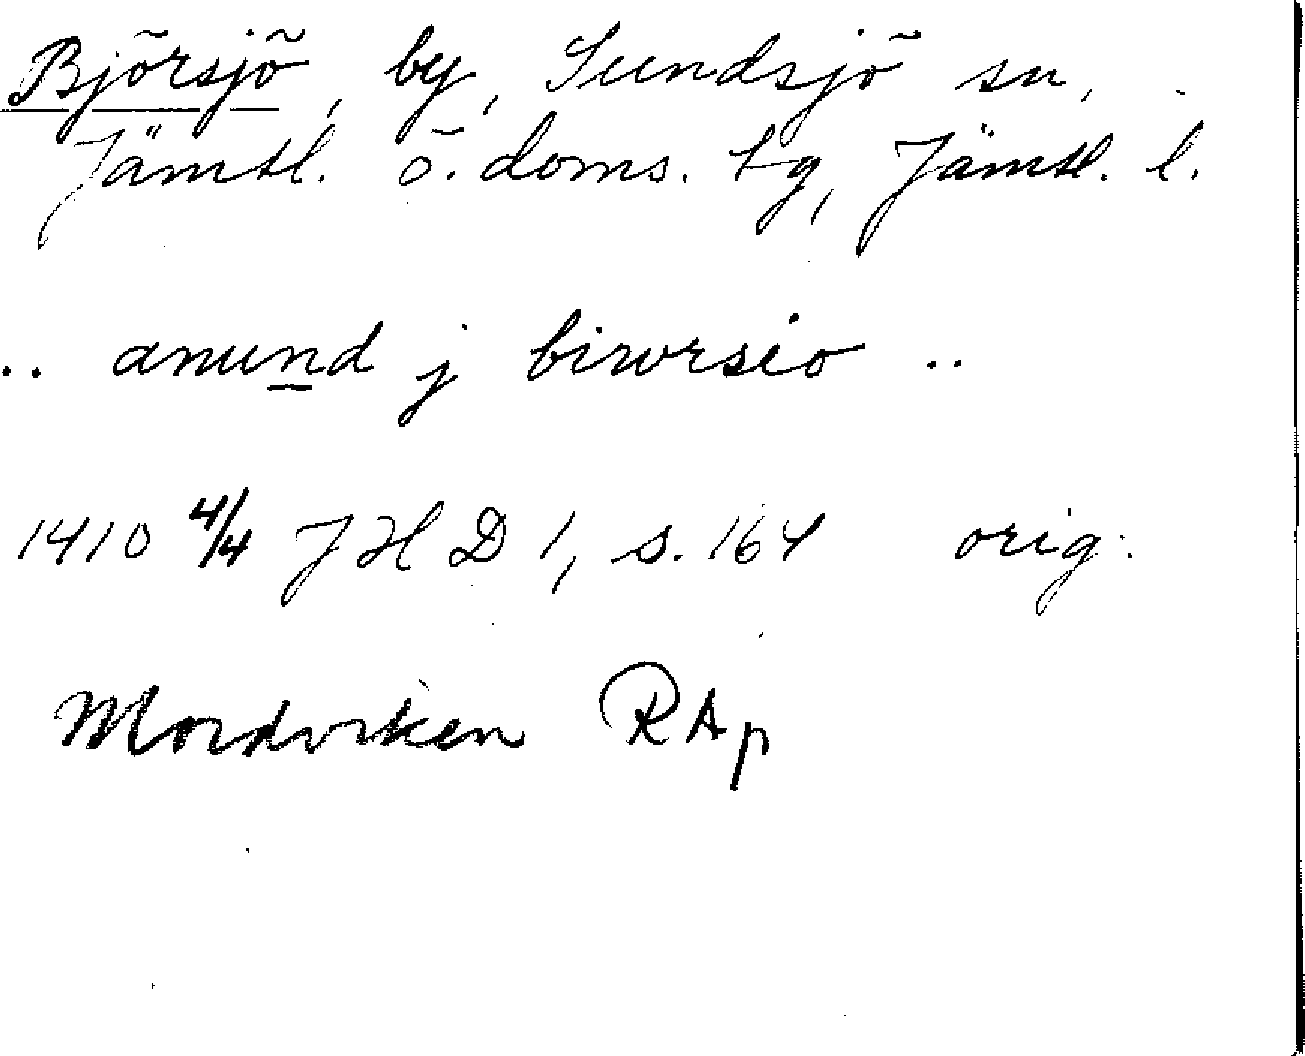 Björsjö, by, Sundsjö sn,
Jämtl. ö. doms. tg, Jämtl. l.
.. anund j birwrsio ..
1410 4/4 JHD 1, s. 164 orig.
Mordviken RAp